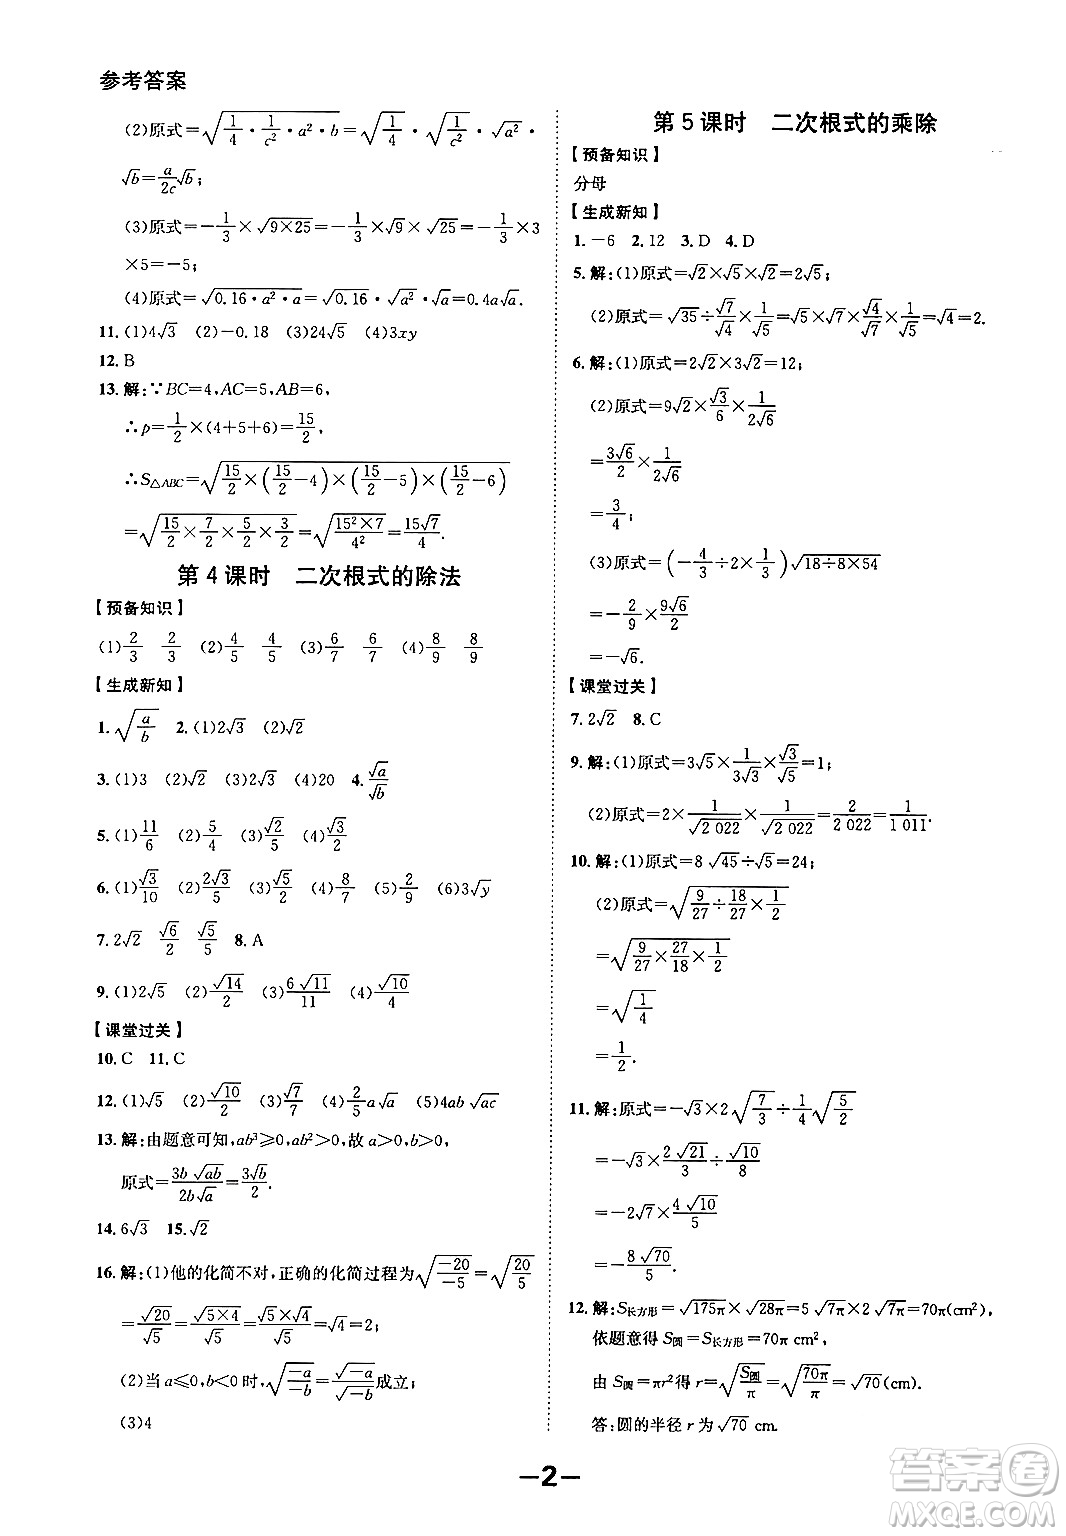 参考答案
(2)原式=√(1/4·1/c²·a²·b)=√(1/4)·√(1/c²)·√(a²)·
√b=a/(2c)√b;
(3)原式=-1/3×√(9×25)=-1/3×√9×√25=-1/3×3
×5=-5;
(4)原式=√(0.16·a²·a)=√0.16·√(a²)·√a=0.4a√a.
11.(1)4√3 (2)-0.18 (3)24√5 (4)3xy
12.B
13.解:∵BC=4,AC=5,AB=6,
∴p=1/2×(4+5+6)=15/2,
∴S△ABC=√(15/2×(15/2-4)×(15/2-5)×(15/2-6))
=√(15/2×7/2×5/2×3/2)=√((15²×7)/4²)=15√7/4.
第4课时 二次根式的除法
【预备知识】
(1)2/3 2/3 (2)4/5 4/5 (3)6/7 6/7 (4)8/9 8/9
【生成新知】
1.√(a/b) 2.(1)2√3 (2)√2
3.(1)3 (2)√2 (3)2√5 (4)20 4.√a/√b
5.(1)11/6 (2)5/4 (3)√2/5 (4)√3/2
6.(1)√3/10 (2)2√3/5 (3)√5/2 (4)8/7 (5)2/9 (6)3√y
7.2√2 √6/2 √5/5 8.A
9.(1)2√5 (2)√14/2 (3)6√11/11 (4)√10/4
【课堂过关】
10.C 11.C
12.(1)√5 (2)√10/2 (3)√7/7 (4)2/5a√a (5)4ab√ac
13.解:由题意可知,ab³≥0,ab²>0,故a>0,b>0,
原式=3b√ab/2b√a=3√b/2.
14.6√3 15.√2
16.解:(1)他的化简不对,正确的化简过程为√(-20/-5)=√(20/5)
=√20/√5=√(5×4)/√5=√5×√4/√5=√4=2;
(2)当a≤0,b<0时,√(-a/-b)=√-a/√-b成立;
(3)4
第5课时 二次根式的乘除
【预备知识】
分母
【生成新知】
1.-6 2.12 3.D 4.D
5.解:(1)原式=√2×√5×√2=2√5;
(2)原式=√35÷√7/√4×1/√5=√5×√7×√4/√7×1/√5=√4=2.
6.解:(1)原式=2√2×3√2=12;
(2)原式=9√2×√3/6×1/2√6
=3√6/2×1/2√6
=3/4;
(3)原式=(-4/3÷2×1/3)√(18÷8×54)
=-2/9×9√6/2
=-√6.
【课堂过关】
7.2√2 8.C
9.解:(1)原式=3√5×1/3√3×√3/√5=1;
(2)原式=2×1/√2 022×1/√2 022=2/2 022=1/1 011.
10.解:(1)原式=8√45÷√5=24;
(2)原式=√(9/27÷18/27×1/2)
=√(9/27×27/18×1/2)
=√(1/4)
=1/2.
11.解:原式=-√3×2√(7/3)÷1/4√(5/2)
=-√3×2√21/3÷√10/8
=-2√7×4√10/5
=-8√70/5.
12.解:S长方形=√175π×√28π=5√7π×2√7π=70π(cm²),
依题意得S圆=S长方形=70π cm²,
由S圆=πr²得r=√(S圆/π)=√(70π/π)=√70(cm).
答:圆的半径r为√70 cm.
-2-
答案卷
MXQE.COM